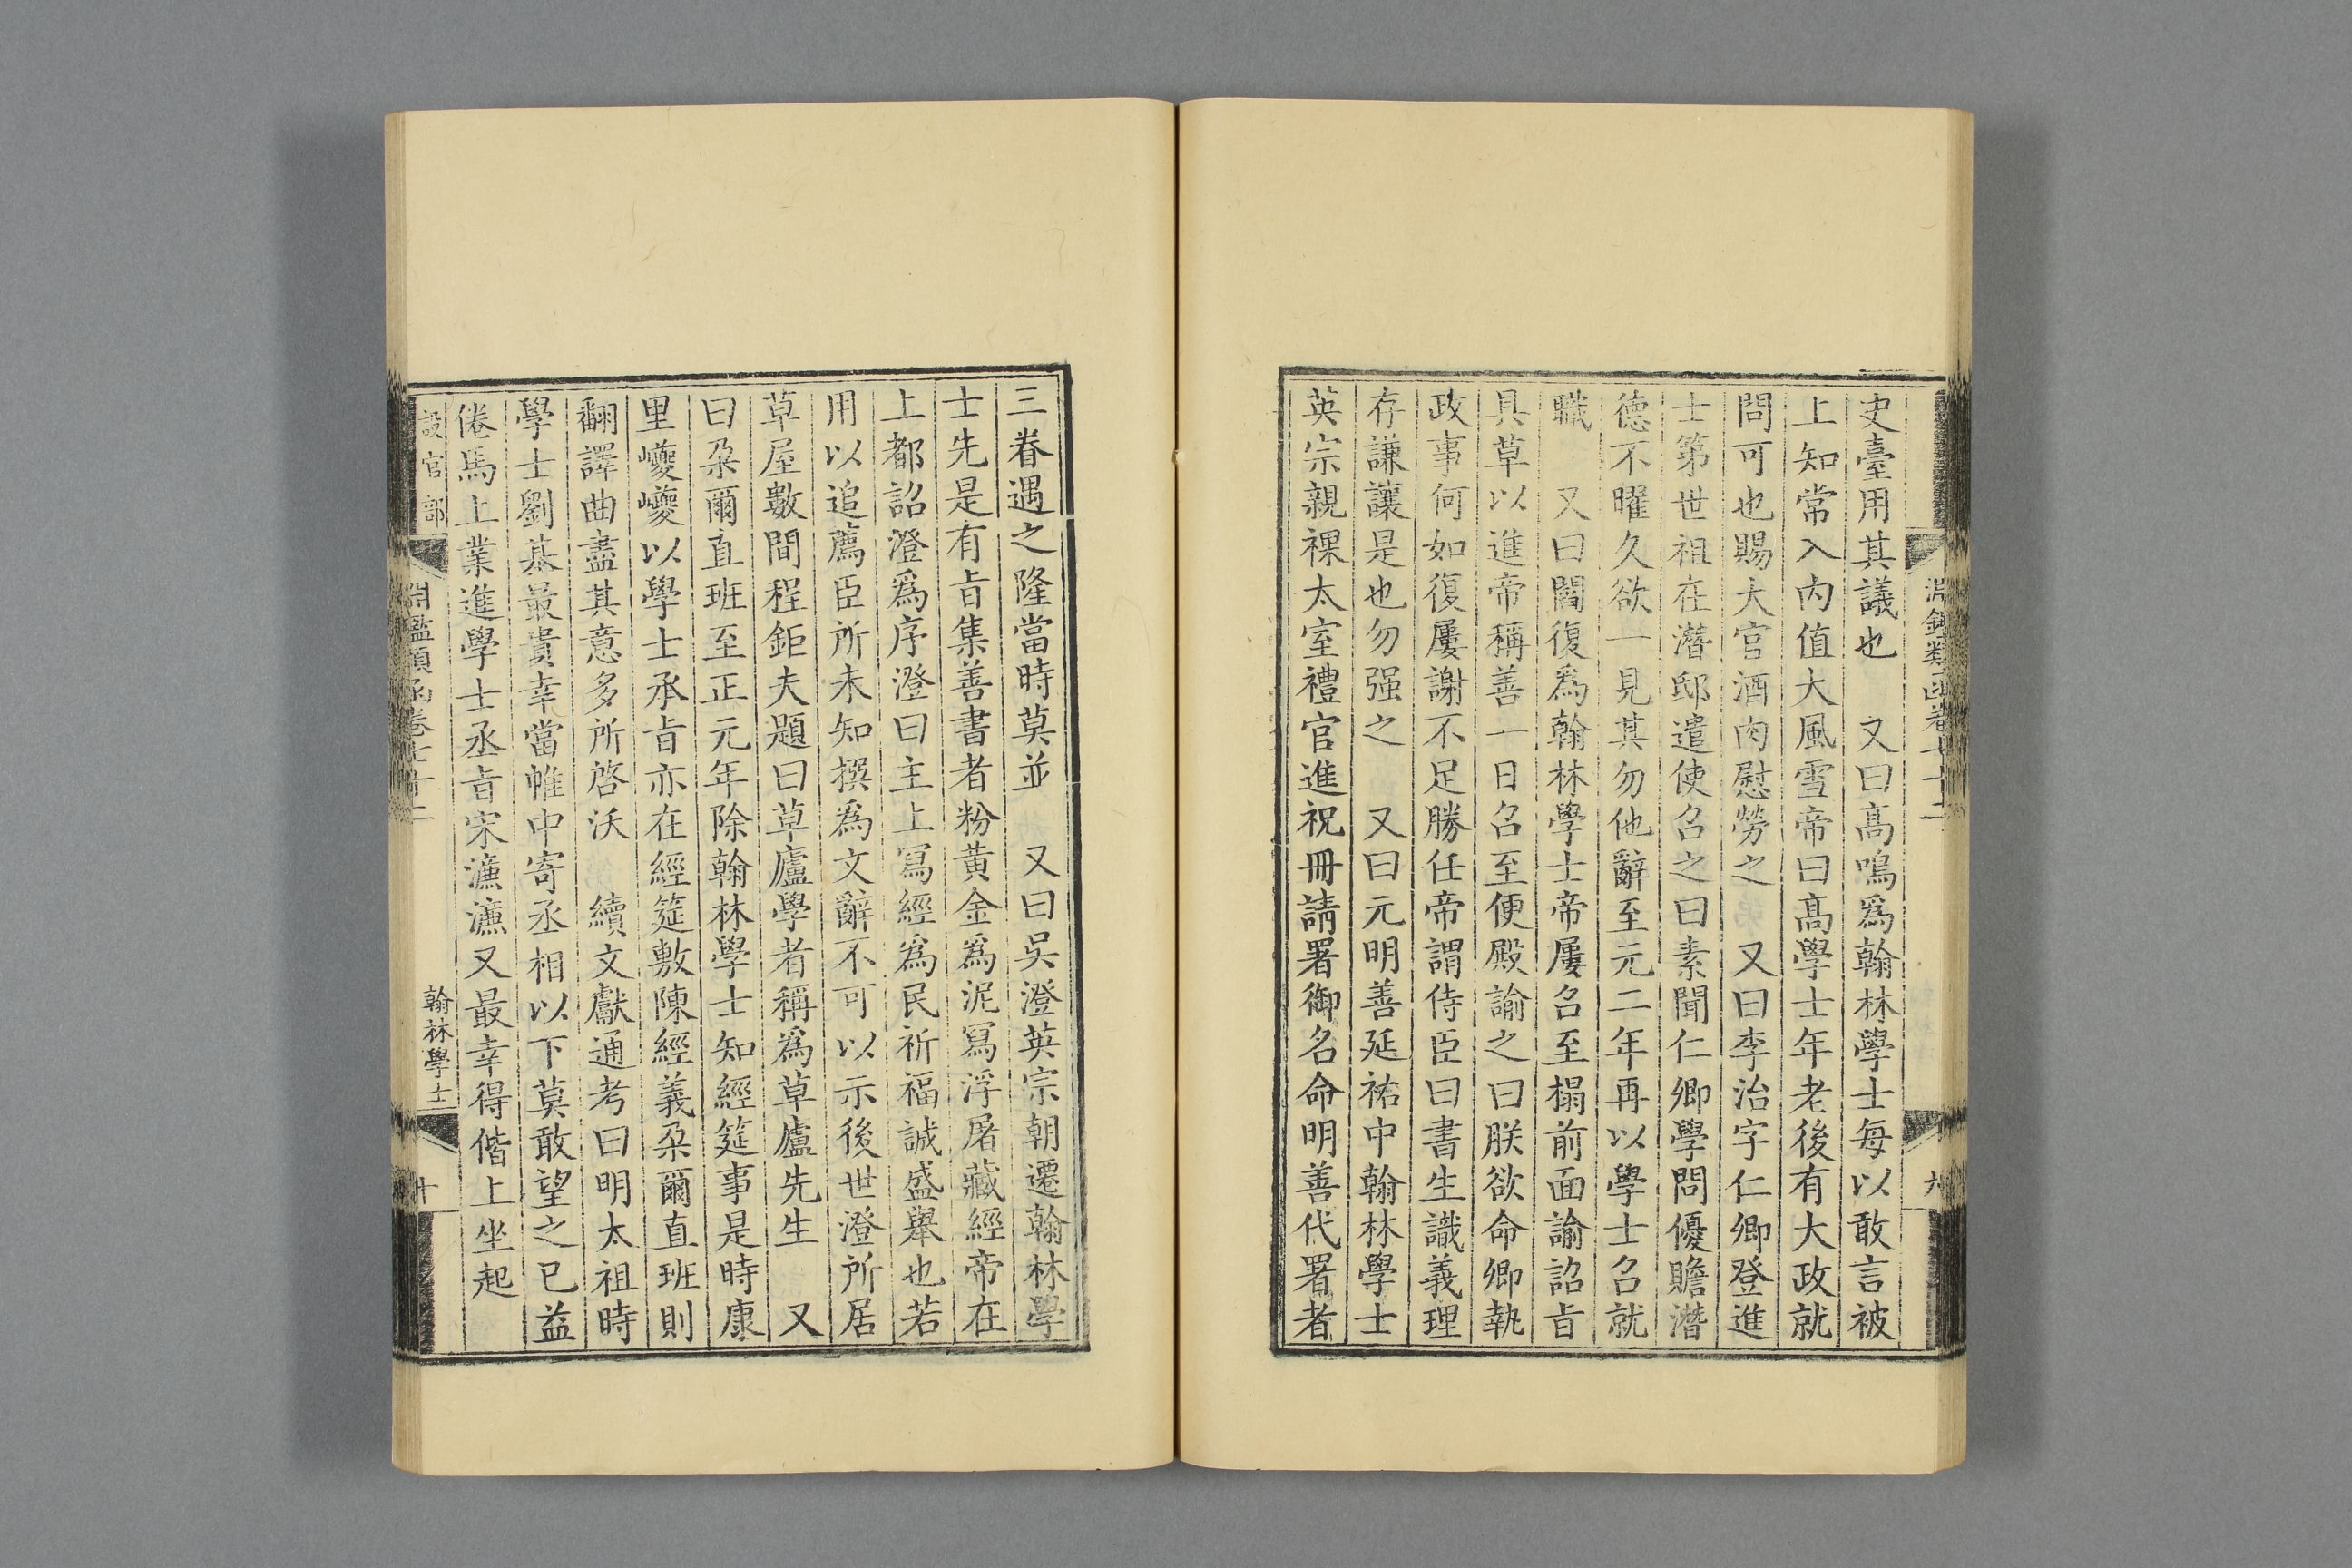 淵鑑類函卷七十二
九
史臺用其議也　又曰高鳴爲翰林學士每以敢言被
上知常入內值大風雪帝曰高學士年老後有大政就
問可也賜大官酒肉慰勞之　又曰李治字仁卿登進
士第世祖在潛邸遣使召之曰素聞仁卿學問優贍潛
德不曜久欲一見其勿他辭至元二年再以學士召就
職　又曰閻復爲翰林學士帝屢召至榻前面諭詔旨
具草以進帝稱善一日召至便殿諭之曰朕欲命卿執
政事何如復屢謝不足勝任帝謂侍臣曰書生識義理
存謙讓是也勿强之　又曰元明善延祐中翰林學士
英宗親祼太室禮官進祝冊請署御名命明善代署者
三眷遇之隆當時莫並　又曰吳澄英宗朝遷翰林學
士先是有旨集善書者粉黃金爲泥寫浮屠藏經帝在
上都詔澄爲序澄曰主上寫經爲民祈福誠盛舉也若
用以追薦臣所未知撰爲文辭不可以示後世澄所居
草屋數間程鉅夫題曰草廬學者稱爲草廬先生　又
曰朶爾直班至正元年除翰林學士知經筵事是時康
里巙巙以學士承旨亦在經筵敷陳經義朶爾直班則
翻譯曲盡其意多所啓沃　續文獻通考曰明太祖時
學士劉基最貴幸當帷中寄丞相以下莫敢望之已益
倦馬上業進學士丞旨宋濂濂又最幸得偕上坐起
設官部
淵鑑類函卷七十二
翰林學士
十